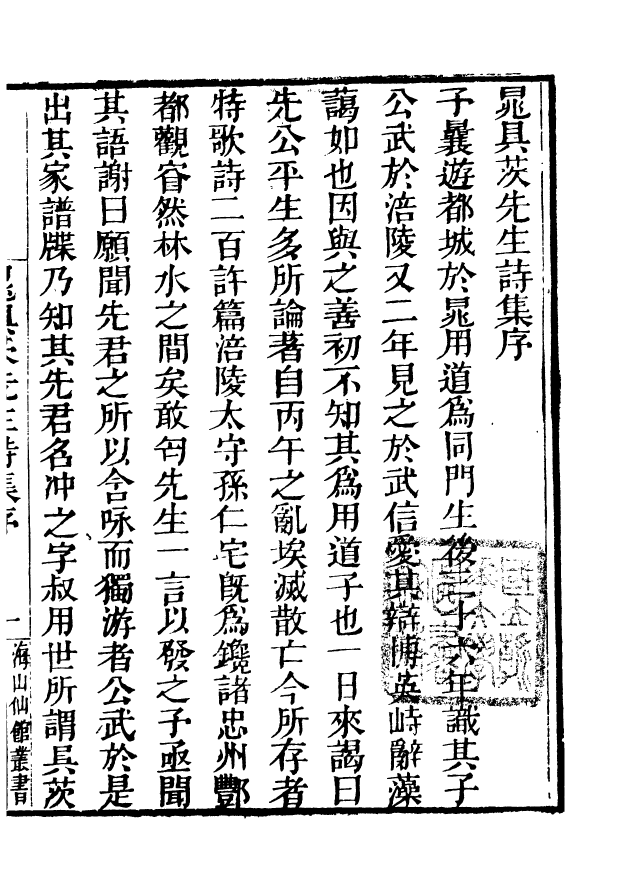 晁具茨先生詩集序
予曩遊都城於晁用道爲同門生後三十六年識其子
公武於涪陵又二年見之於武信愛其辯博英峙辭藻
藹如也因與之善初不知其爲用道子也一日來謁曰
先公平生多所論著自丙午之亂埃滅散亡今所存者
特歌詩二百許篇涪陵太守孫仁宅旣爲鑱諸忠州酆
都觀窅然林水之間矣敢匄先生一言以發之予亟聞
其語謝曰願聞先君之所以含咏而獨游者公武於是
出其家譜牒乃知其先君名冲之字叔用世所謂具茨
晁具茨先生詩集序
一
海山仙館叢書